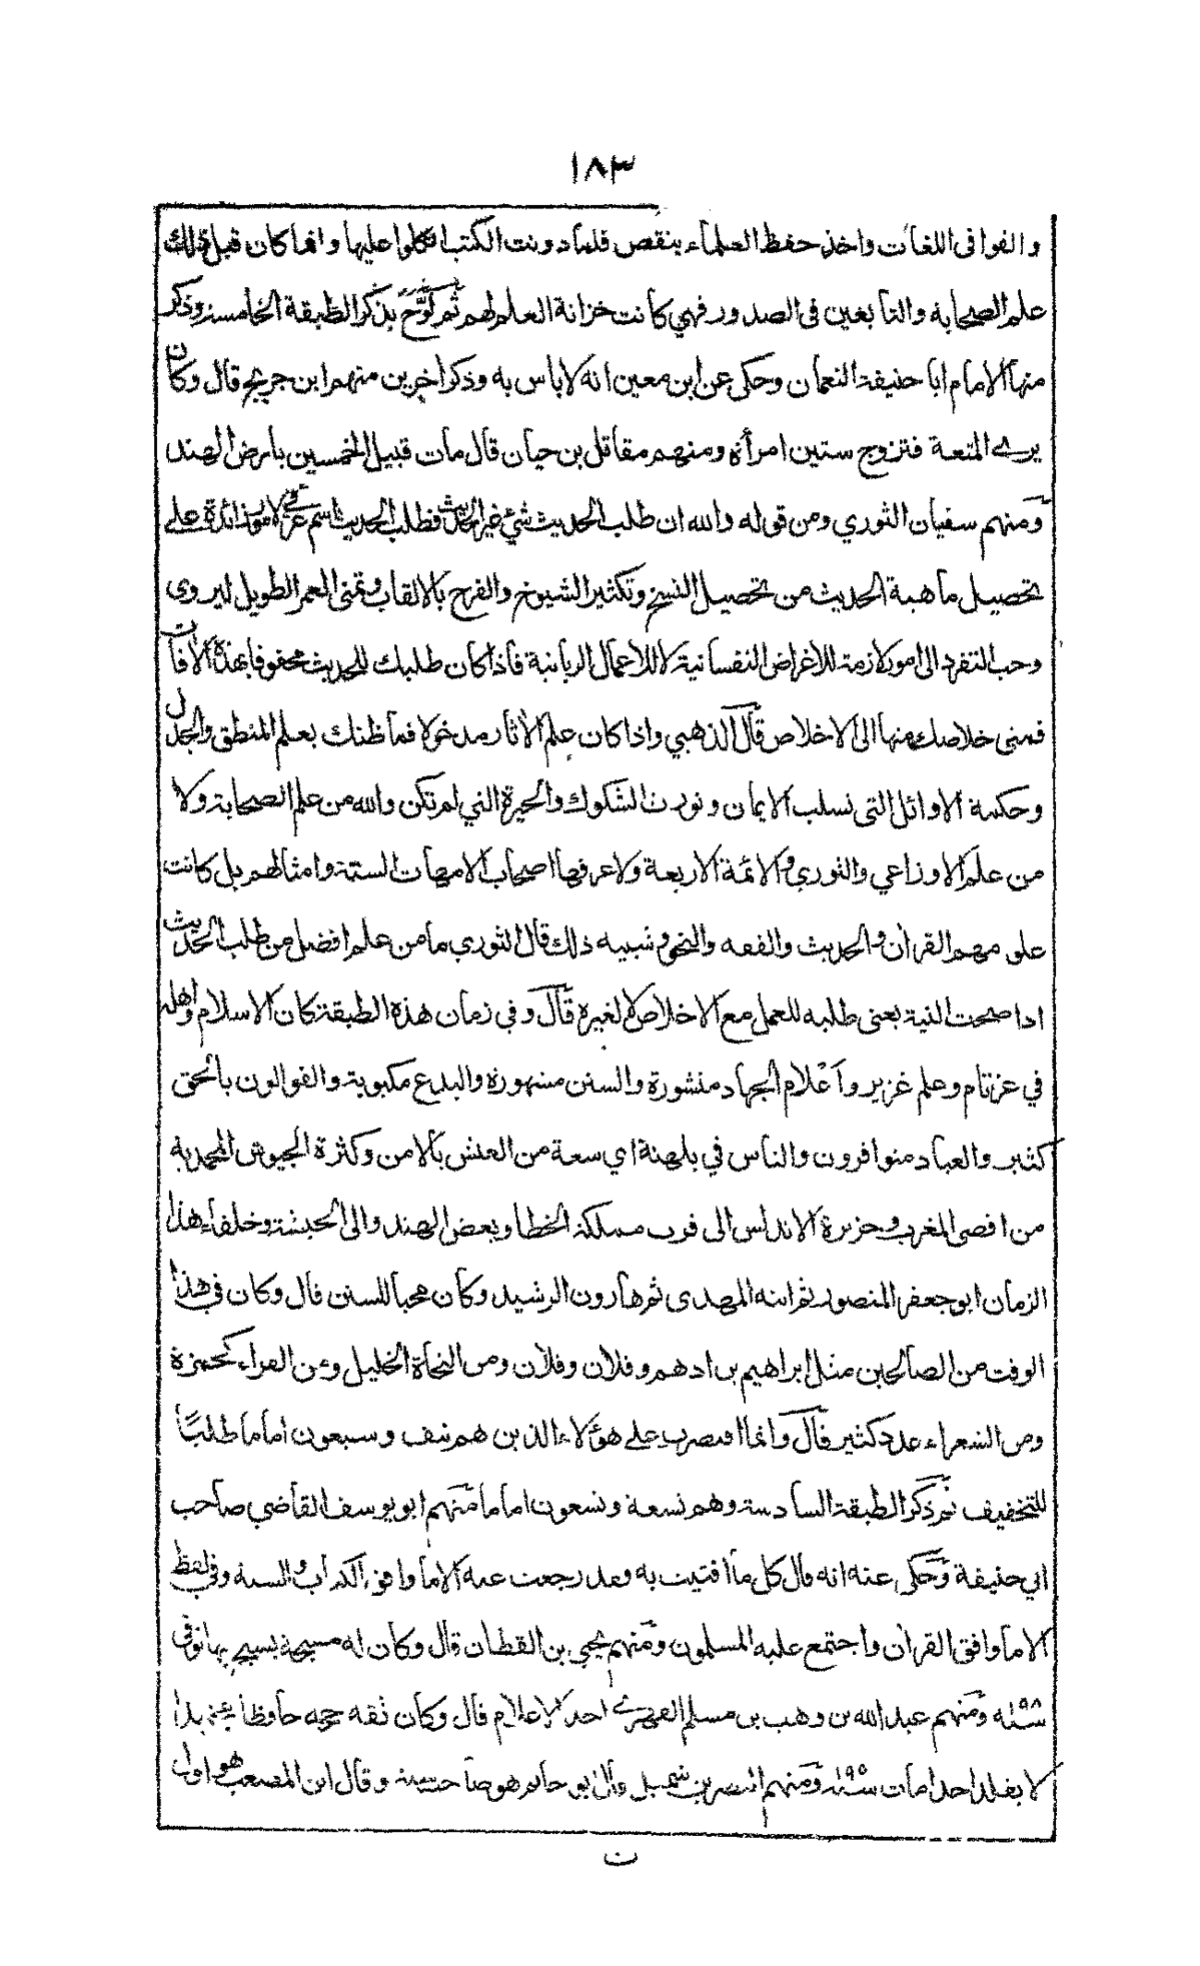 ١٨٣
والفوا فى اللغات واخذ حفظ العلماء ينقص فلما دونت الكتب اتكلوا عليها وانما كان قبل ذلك
علم الصحابة والتابعين فى الصدور فهي كانت خزانة العلم لهم ثم لوَّح بذكر الطبقة الخامسة وذكر
منها الامام ابا حنيفة النعمان وحكى عن ابن معين انه لا باس به وذكر اخرين منهم ابن جريج قال وكان
يرى المتعة فتزوج ستين امرأة ومنهم مقاتل بن حيان قال مات قبيل الخمسين بارض الهند
ومنهم سفيان الثوري ومن قوله والله ان طلب الحديث شئ غير الحديث فطلب الحديث اسم عرفي لامور زائدة على
تحصيل ماهية الحديث من تحصيل النسخ وتكثير الشيوخ والفرح بالالقاب وتمنى العمر الطويل ليروى
وحب التفرد الى امور لازمة للاغراض النفسانية لا للاعمال الربانية فاذا كان طلبك للحديث محفوفا بهذه الافات
فمتى خلاصك منها الى الاخلاص قال الذهبي واذا كان علم الاثار مدخولا فما ظنك بعلم المنطق والجدل
وحكمة الاوائل التى تسلب الايمان وتورث الشكوك والحيرة التي لم تكن والله من علم الصحابة ولا
من علم الاوزاعي والثوري والائمة الاربعة ولا عرفها اصحاب الامهات الستة وامثالهم بل كانت
علومهم القران والحديث والفقه والنحو وشبيه ذلك قال الثوري ما من علم افضل من طلب الحديث
اذا صحت النية يعنى طلبه للعمل مع الاخلاص لا لغيره قال وفي زمان هذه الطبقة كان الاسلام واهله
في عز تام وعلم غزير وأعْلام الجهاد منشورة والسنن مشهورة والبدع مكبوبة والقوالون بالحق
كثير والعباد متوافرون والناس في بلهنة اي سعة من العيش بالامن وكثرة الجيوش المحمدية
من اقصى المغرب وجزيرة الاندلس الى قرب مملكة الخطا وبعض الهند والى الحبشة وخلفاء هذا
الزمان ابو جعفر المنصور ثم ابنه المهدى ثم هارون الرشيد وكان محبا للسنن قال وكان في هذا
الوقت من الصالحين مثل ابراهيم بن ادهم وفلان وفلان ومن النحاة الخليل ومن القراء كحمزة
ومن الشعراء عدد كثير قال وانما اقتصرت على هؤلاء الذين هم نيف وسبعون اماما طلبًا
للتخفيف ثم ذكر الطبقة السادسة وهم تسعة وتسعون اماما منهم ابو يوسف القاضي صاحب
ابي حنيفة وحكى عنه انه قال كل ما افتيت به وقد رجعت عنه الا ما وافق الكتاب والسنة وفي لفظ
الا ما وافق القران واجتمع عليه المسلمون ومنهم يحيى بن القطان قال وكان له مسبحة يسبح بها توفى
سنة ١٩٨ ومنهم عبد الله بن وهب بن مسلم الفهري احد الاعلام قال وكان ثقة حجة حافظا مجتهدا
لا يقلد احدا مات سنة ١٩٥ ومنهم النضر بن شميل قال ابو حاتم هو صاحب سنة وقال ابن المصعب هو اول
ن